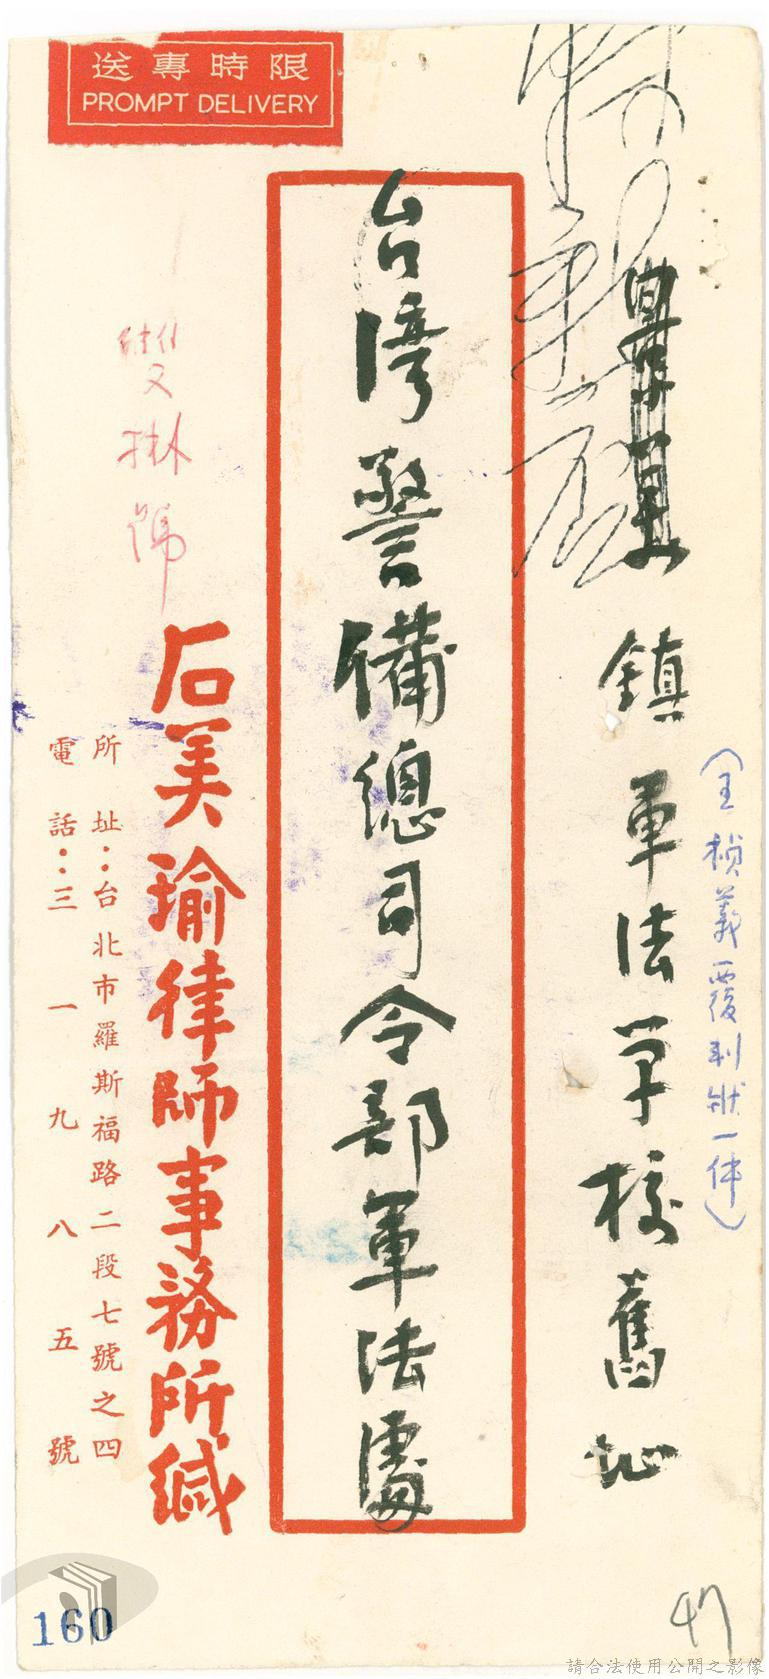 限時專送
PROMPT DELIVERY
鎮軍法学校舊址
(王楨義覆判狀一件)
台湾警備總司令部軍法處
雙掛號
石美瑜律師事務所緘
所址：台北市羅斯福路二段七號之四
電話：三一九八五號
47
160
請合法使用公開之影像